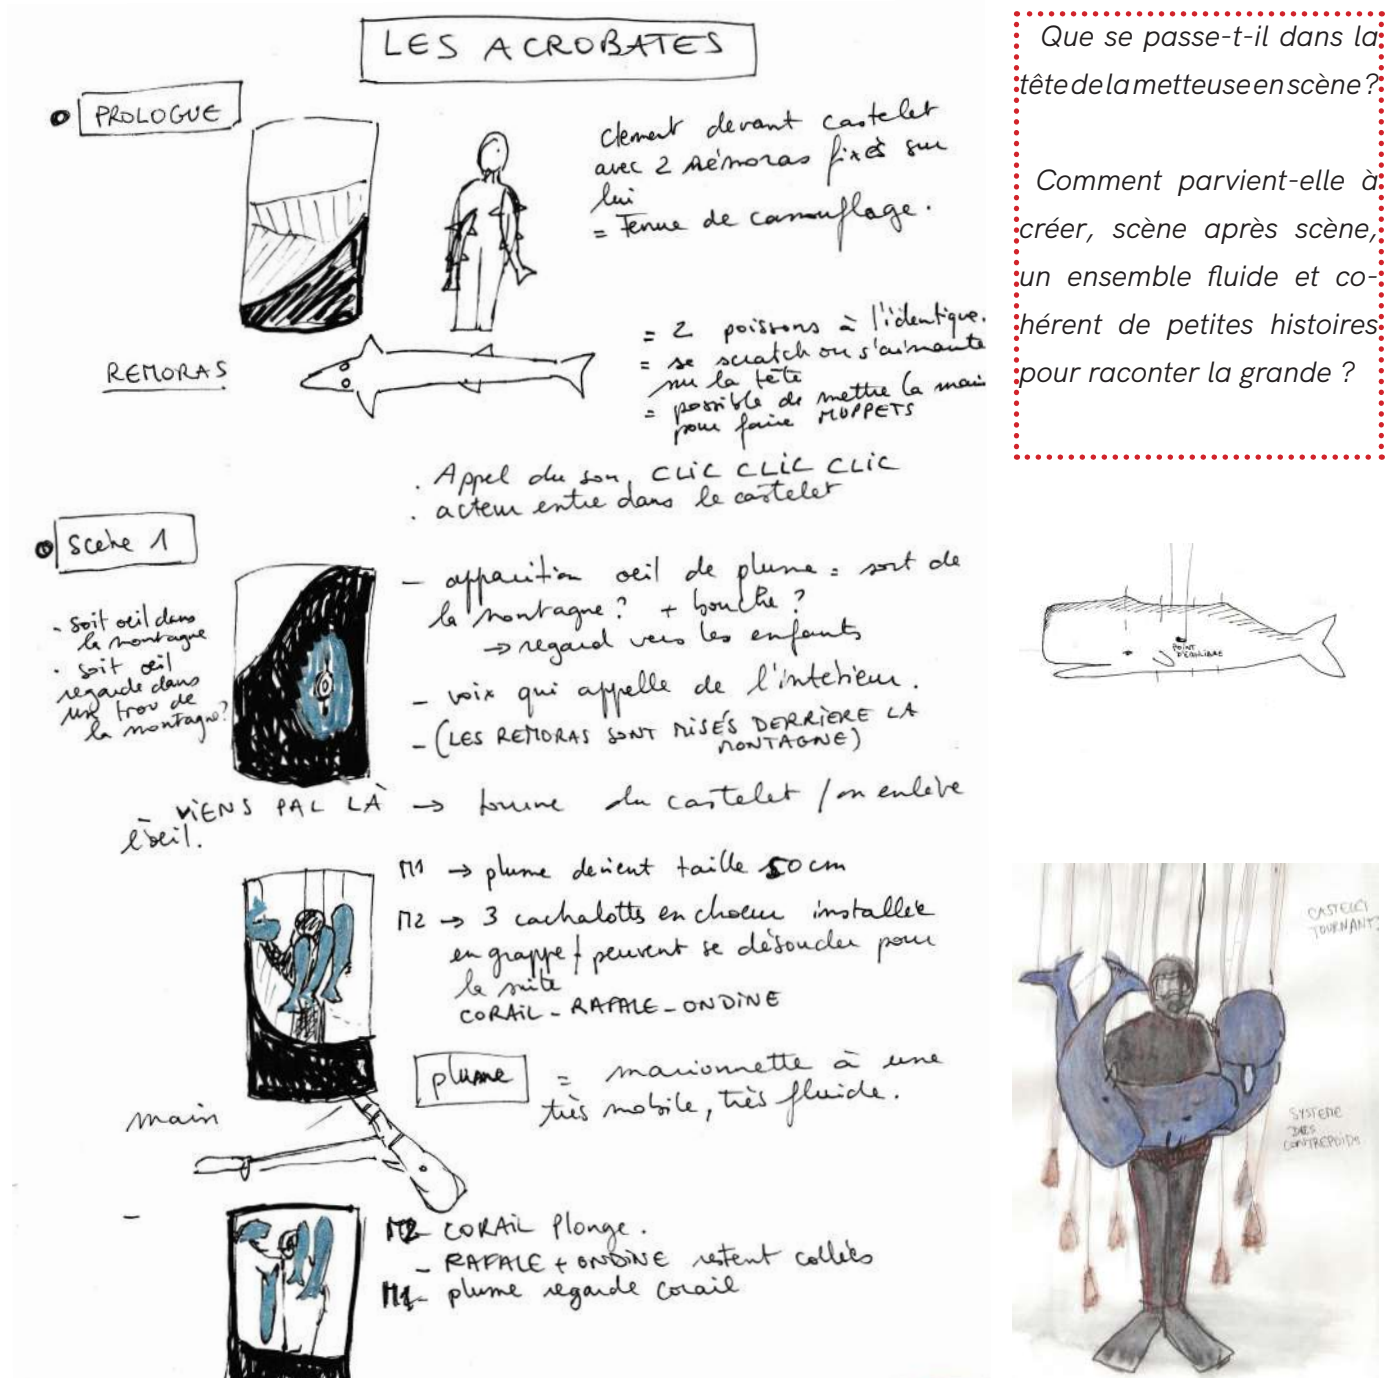 LES ACROBATES
PROLOGUE
clement devant castelet
avec 2 rémoras fixés sur
lui
= Tenue de camouflage.
REMORAS
= 2 poissons à l'identique.
= se scratch ou s'aimante
sur la tête
= possible de mettre la main
pour faire MUPPETS
. Appel du son, CLIC CLIC CLIC
. acteur entre dans le castelet
Scène 1
- soit oeil dans
la montagne
- soit oeil
regarde dans
un trou de
la montagne?
- apparition oeil de plume = sort de
la montagne? + bouche?
→ regard vers les enfants
- voix qui appelle de l'intérieur.
- (LES REMORAS SONT MISÉS DERRIÈRE LA
MONTAGNE)
- VIENS PAL LÀ → tourne du castelet / on enlève
l'oeil.
M1 → plume devient taille 50 cm
M2 → 3 cachalotts en choeur installée
en grappe / peuvent se désouder pour
la suite
CORAIL - RAFALE - ONDINE
plume = marionnette à une
main très mobile, très fluide.
- M2 - CORAIL Plonge.
- RAFALE + ONDINE restent collés
M1 - plume regarde corail
Que se passe-t-il dans la
tête de la metteuse en scène ?
Comment parvient-elle à
créer, scène après scène,
un ensemble fluide et co-
hérent de petites histoires
pour raconter la grande ?
POINT
D'EQUILIBRE
CASTELET
TOURNANT
SYSTEME
DES
CONTREPOIDS